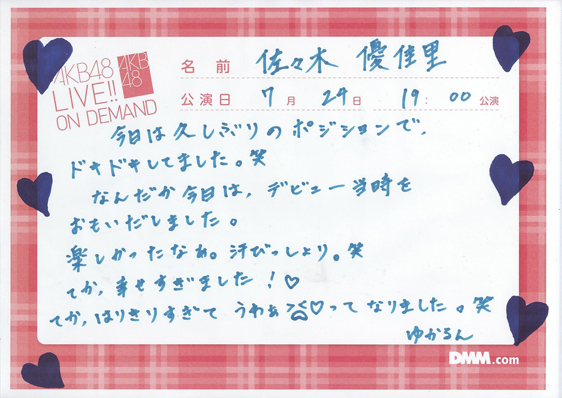 AKB48
LIVE!!
ON DEMAND
AKB
48
名前 佐々木 優佳里
公演日 7月 24日 19:00 公演
今日は久しぶりのポジションで、
ドキドキしてました。笑
なんだか今日は、デビュー当時を
おもいだしました。
楽しかったなぁ。汗びっしょり。笑
てか、幸せすぎました！♡
てか、はりきりすぎて うわぁ><♡って なりました。笑
ゆかるん
DMM.com